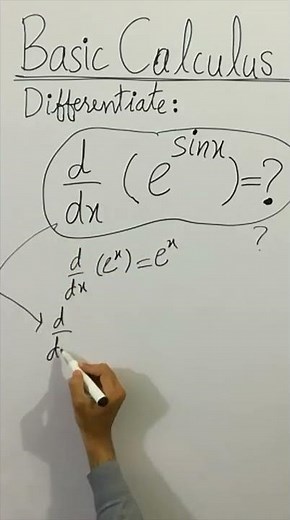 Basic Calculus
Differentiate:
d/dx (e^sinx)=?
?
d/dx (e^x)=e^x
d/d